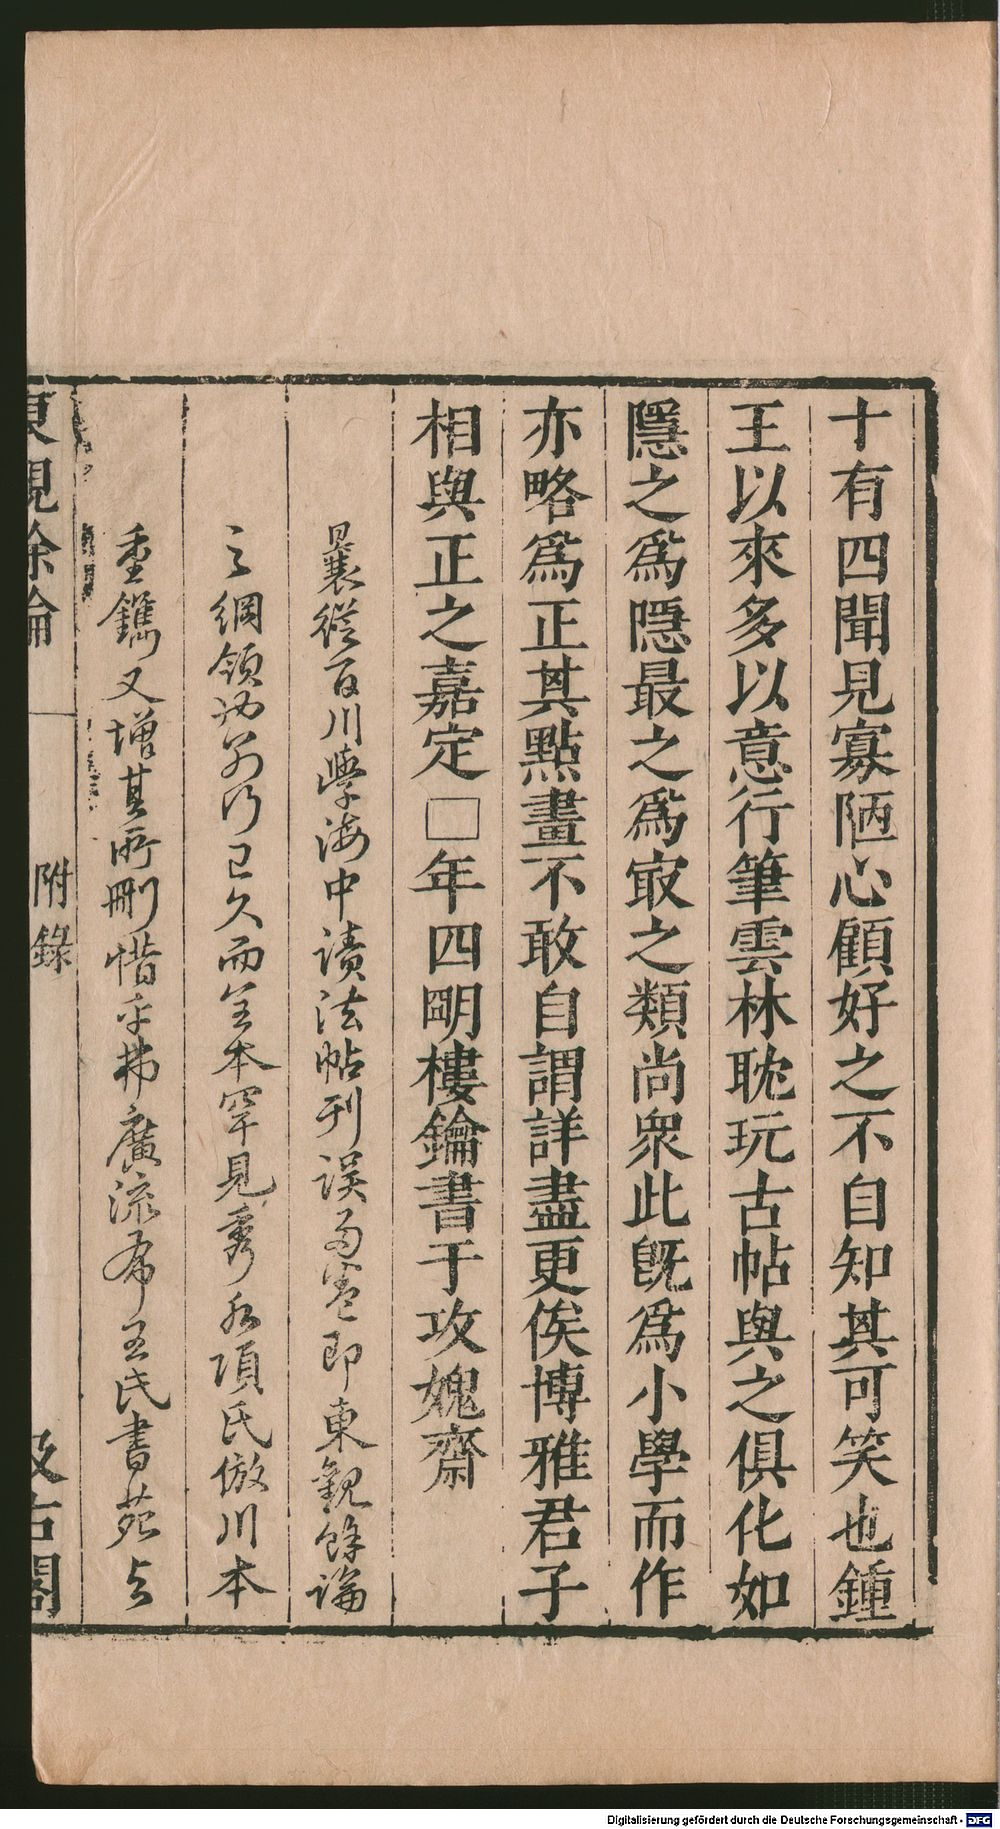 十有四聞見寡陋心顧好之不自知其可笑也鍾
王以來多以意行筆雲林耽玩古帖與之俱化如
隱之爲隠最之爲㝡之類尚衆此旣爲小學而作
亦略爲正其點畫不敢自謂詳盡更俟博雅君子
相與正之嘉定□年四明樓鑰書于攻媿齋
曩從百川學海中讀法帖刊误兩卷即東觀餘論
之綱領也 行已久而全本罕見秀水項氏倣川本
重鐫又增其所刪惜乎弗廣流布王氏書苑与
東觀餘論
附錄
汲古閣
Digitalisierung gefördert durch die Deutsche Forschungsgemeinschaft - DFG